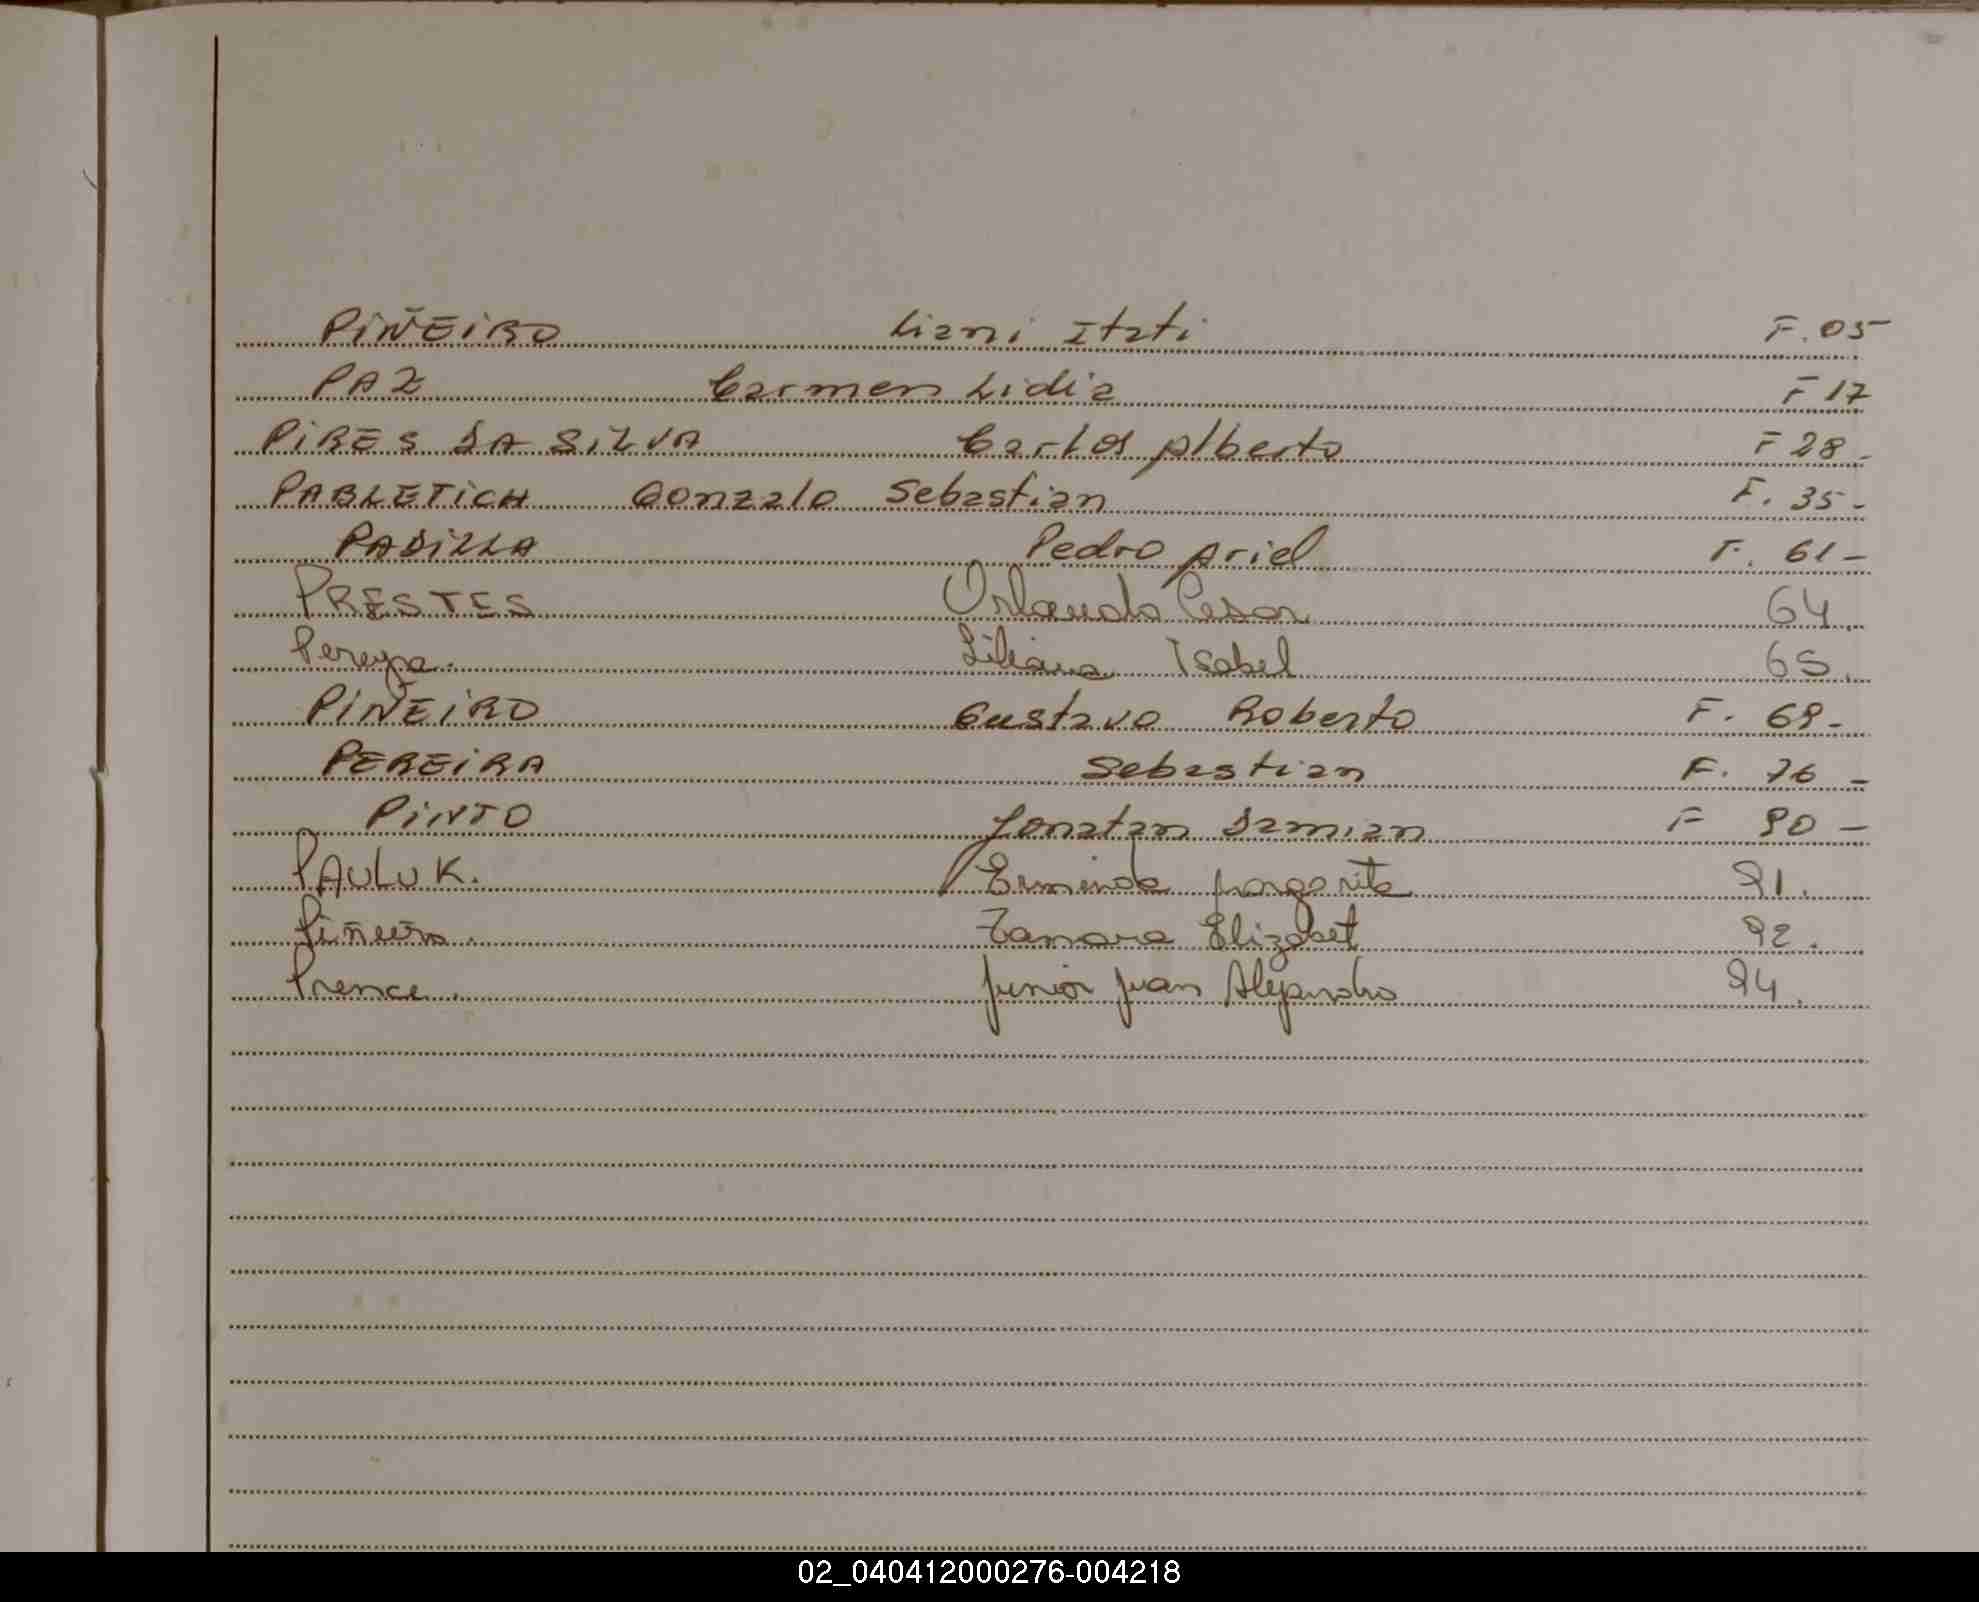 PIÑEIRO Liani Itati F. 05
PAZ Carmen Lidia F 17
PIRES DA SILVA Carlos Alberto F 28 -
PABLETICH Gonzalo Sebastian F. 35 -
PADILLA Pedro Ariel F. 61 -
PRESTES Orlando Cesar 64.
Pereyra. Liliana Isabel 65.
PIÑEIRO Gustavo Roberto F. 69 -
PEREIRA Sebastian F. 76 -
PINTO Jonatan Damian F 90 -
PAULUK. Erminda Margarita 91.
Piñeiro. Tamara Elizabet 92.
Prence. Junior Juan Alejandro 94.
02_040412000276-004218